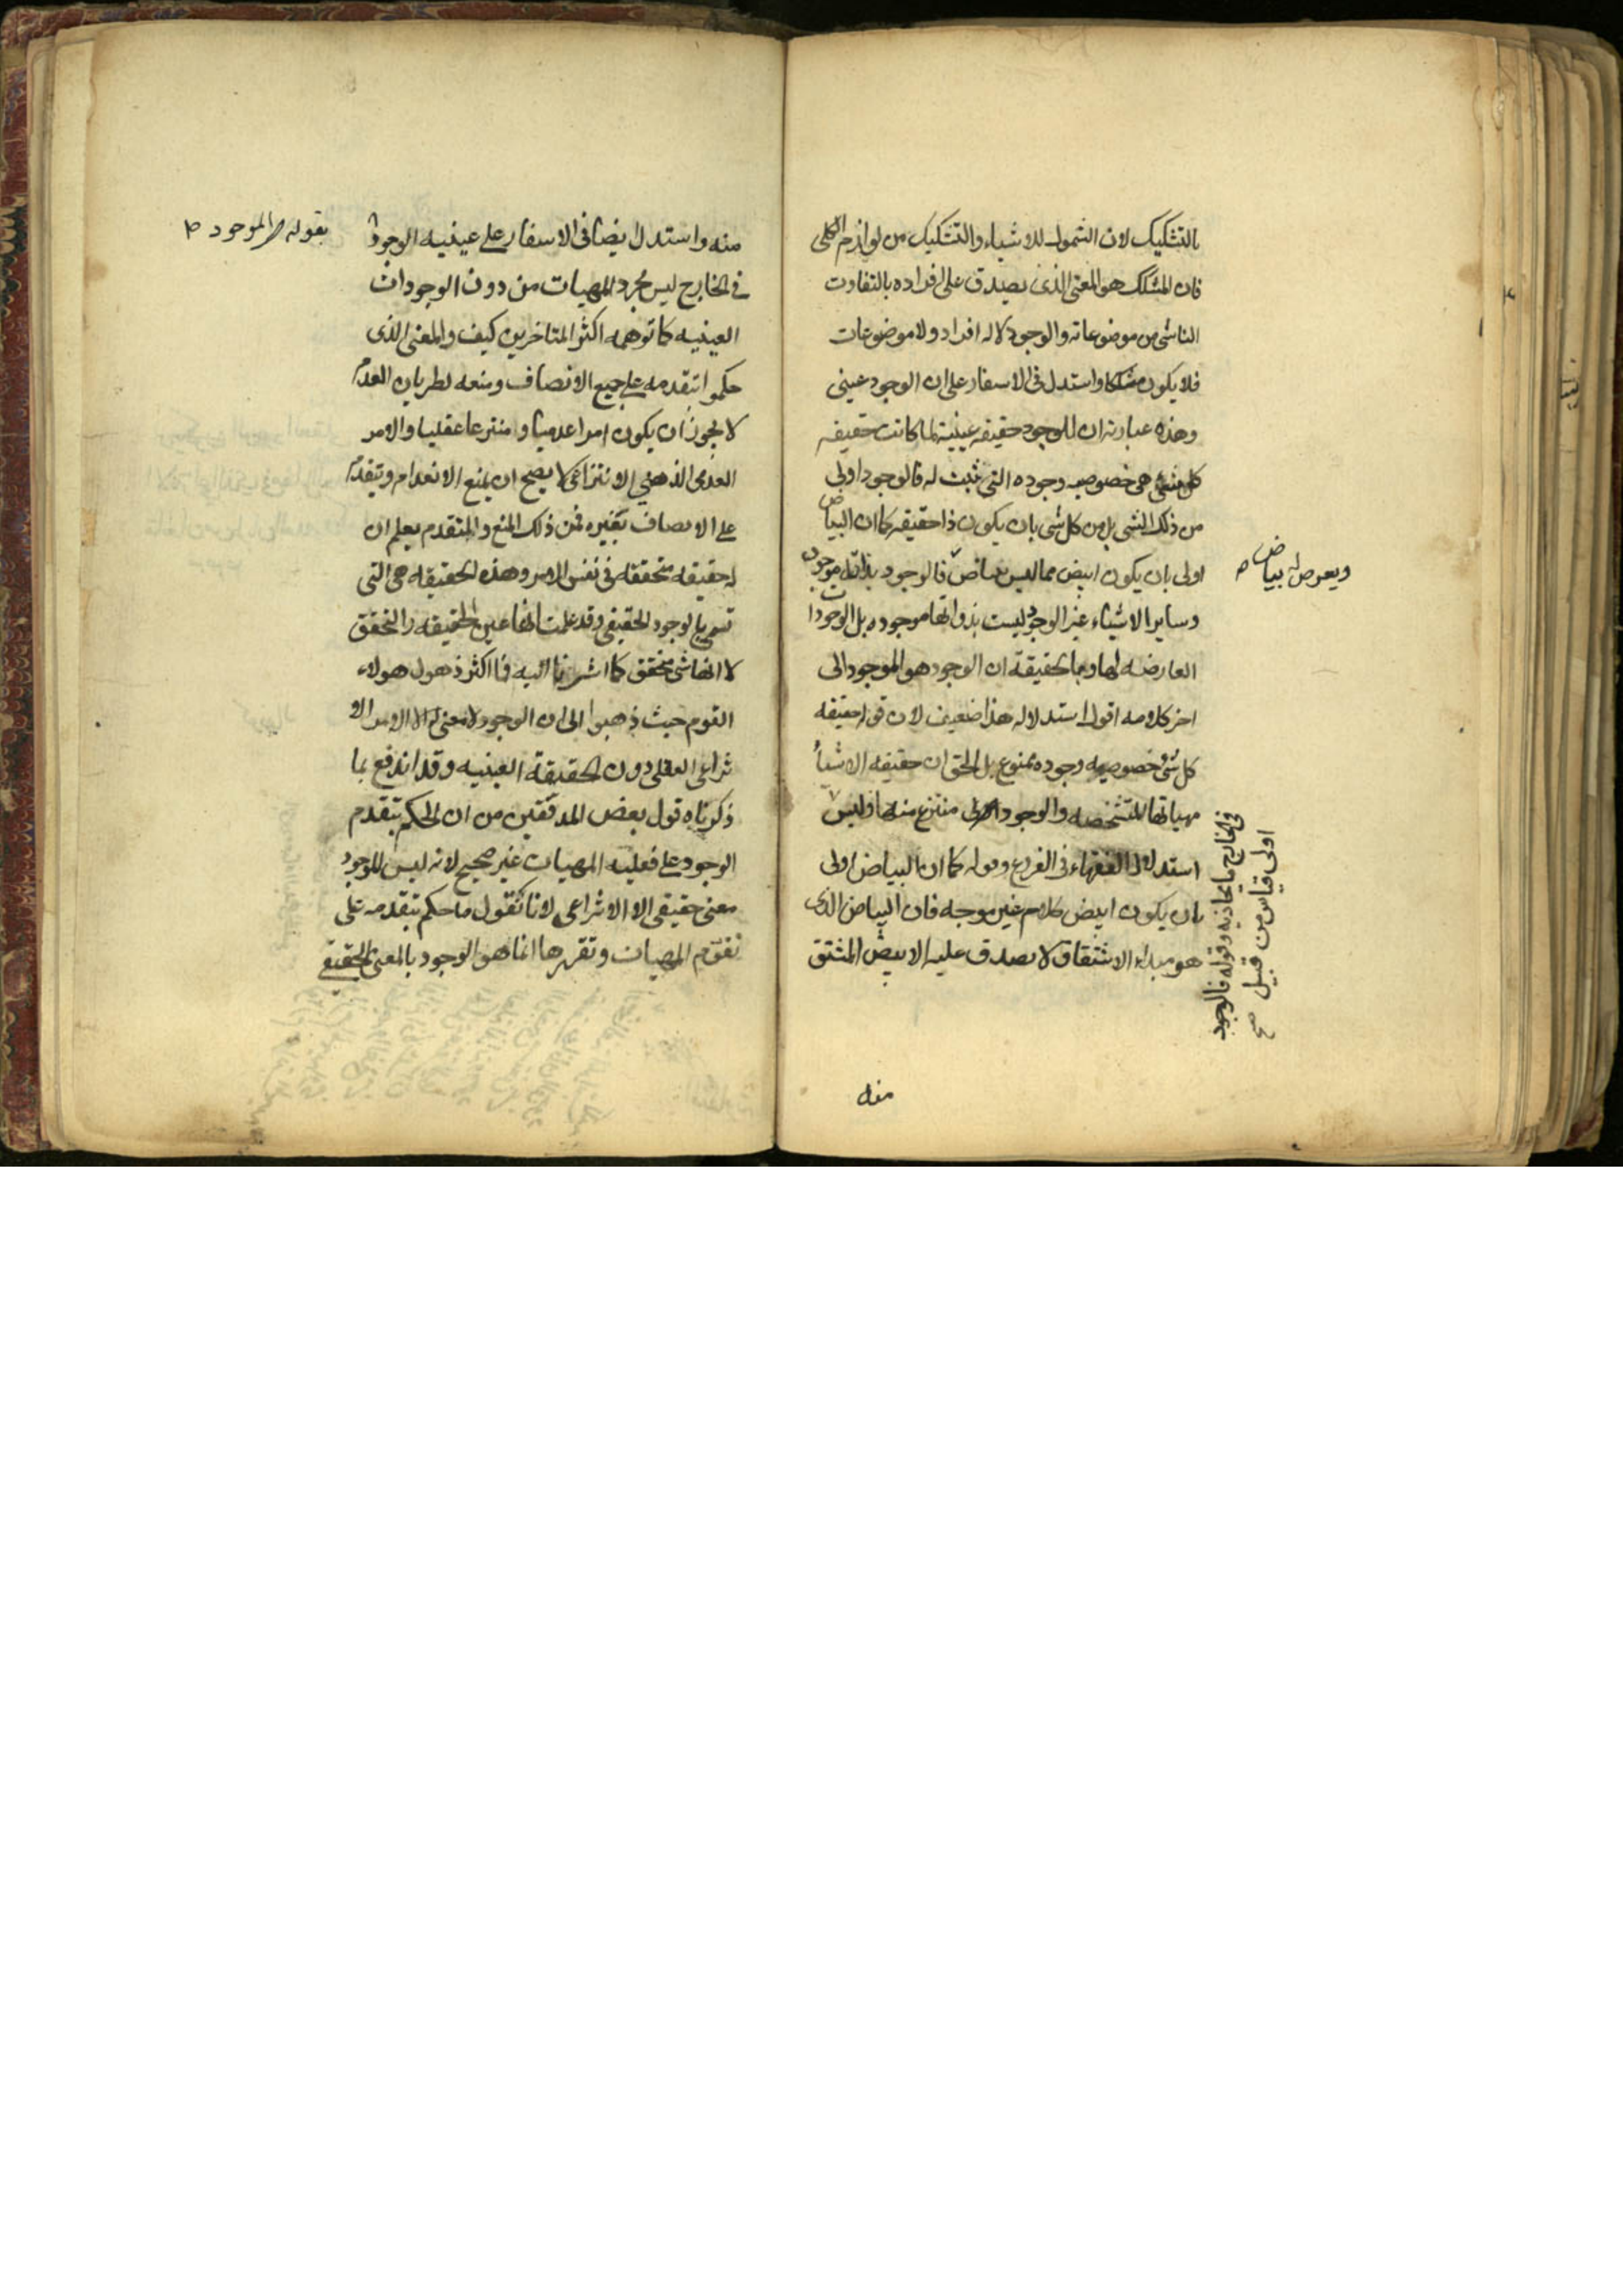 بالتشكيك لان الشمول للاشياء والتشكيك من لوازم الكلى
فان المشكك هو المعنى الذى يصدق على افراده بالتفاوت
الناشى من موضوعاته والوجود لا له افراد ولا موضوعات
فلا يكون مشككا واستدل فى الاسفار على ان الوجود عينى
وهذه عبارته ان للوجود حقيقه عينية لما كانت حقيقه
كل شئ هى خصوصيه وجوده التى ثبت له فالوجود اولى
من ذلك الشى بل من كل شى بان يكون ذا حقيقه كما ان البياض
اولى بان يكون ابيض مما ليس بياض فالوجود بذاته موجود
ويعرض له بياض
وساير الاشياء غير الوجود ليست بذواتها موجوده بل الوجودات
العارضه لها وبالحقيقة ان الوجود هو الموجود الى
اخر كلامه اقول استدلاله هذا ضعيف لان قوله حقيقه
كل شئ خصوصيه وجوده ممنوع بل الحق ان حقيقه الاشياء
مهياتها المتشخصه والوجود منتزع منها وليس
فى الخارج ما يحاذيه وقوله فالوجود
اولى قياس من قبيل صح
استدلال الفقهاء فى الفروع وقوله كما ان البياض اولى
بان يكون ابيض كلام غير موجه فان البياض الذى
هو مبداء الاشتقاق لا يصدق عليه الابيض المشتق
منه
منه واستدل ايضا فى الاسفار على عينيه الوجود
بقوله الموجود
فى الخارج ليس مجرد المهيات من دون الوجودات
العينيه كما توهمه اكثر المتاخرين كيف والمعنى الذى
حكموا بتقدمه على جميع الاتصاف ومنعه لطريان العدم
لا يجوز ان يكون امرا عدميا ومنتزعا عقليا والامر
العدمى الذهنى الانتزاعى لا يصح ان يمنع الانعدام ويتقدم
على الاتصاف بغيره فمن ذلك المنع والمتقدم يعلم ان
له حقيقه متحققه فى نفس الامر وهذه الحقيقه هى التى
تسمى بالوجود الحقيقى وقد علمت انها عين الحقيقه والتحقق
لا انها شى متحقق كما اشرنا اليه فما اكثر ذهول هولاء
القوم حيث ذهبوا الى ان الوجود لا معنى له الا الامر الانـ
تزاعى العقلى دون الحقيقة العينيه وقد اندفع بما
ذكرناه قول بعض المدققين من ان الحكم بتقدم
الوجود على فعليه المهيات غير صحيح لانه ليس للوجود
معنى حقيقى الا الانتزاعى لانا نقول ما حكم بتقدمه على
تقوم المهيات وتقررها انما هو الوجود بالمعنى الحقيقى